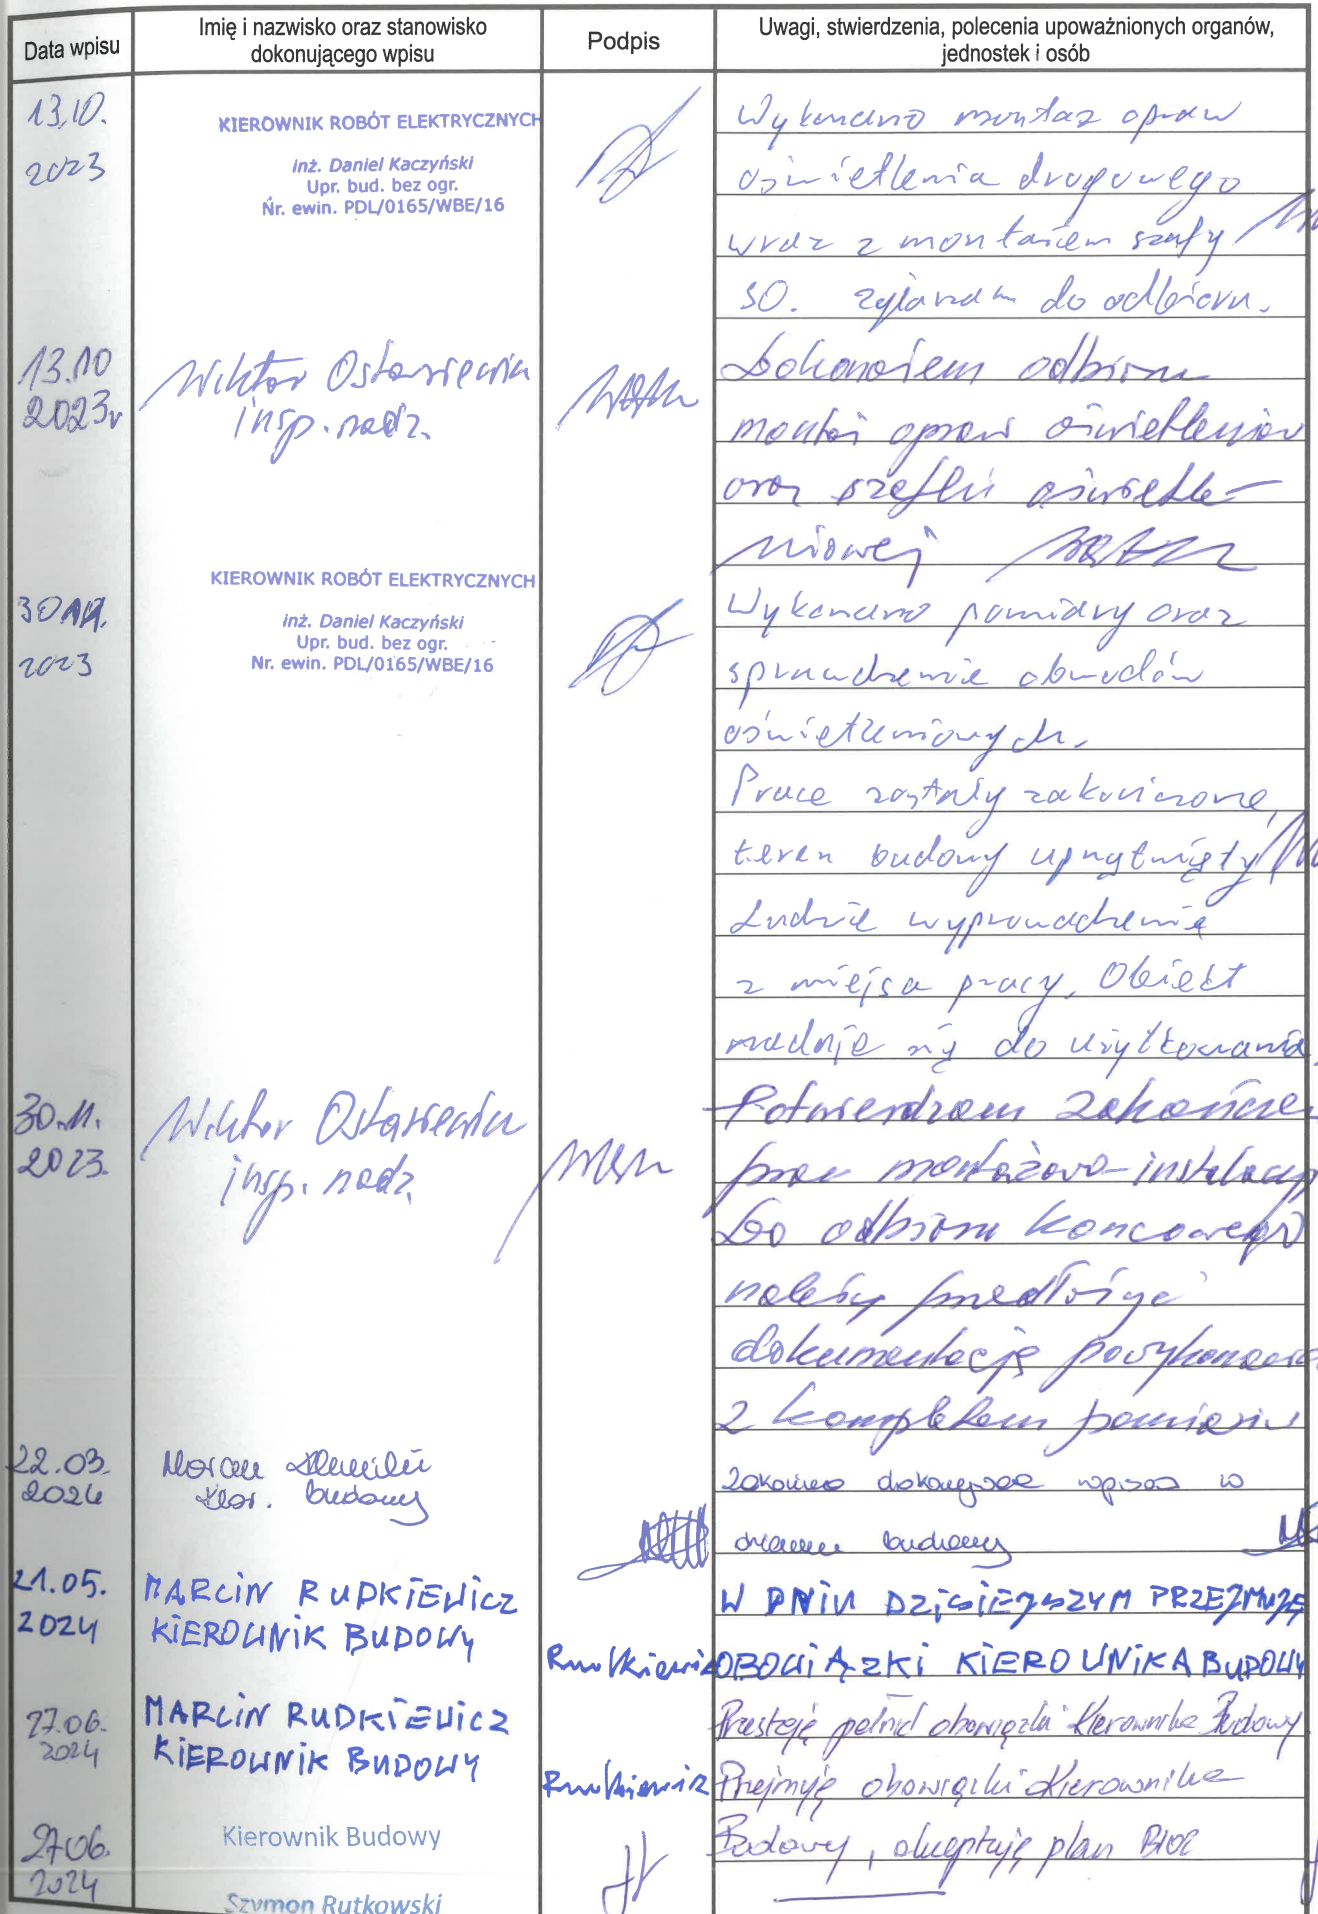 Data wpisu
Imię i nazwisko oraz stanowisko
dokonującego wpisu
Podpis
Uwagi, stwierdzenia, polecenia upoważnionych organów,
jednostek i osób
13.10.
2023
KIEROWNIK ROBÓT ELEKTRYCZNYCH
inż. Daniel Kaczyński
Upr. bud. bez ogr.
Nr. ewin. PDL/0165/WBE/16
Wykonano montaż opraw
oświetlenia drogowego
wraz z montażem szafy
SO. zgłaszam do odbioru.
13.10
2023r
Wiktor Ostasiewicz
insp. nadz.
Dokonałem odbioru
montaż opraw oświetleniow
oraz szafki oświetle-
niowej
30.11.
2023
KIEROWNIK ROBÓT ELEKTRYCZNYCH
inż. Daniel Kaczyński
Upr. bud. bez ogr.
Nr. ewin. PDL/0165/WBE/16
Wykonano pomiary oraz
sprawdzenie obwodów
oświetleniowych.
Prace zostały zakończone,
teren budowy uprzątnięty
Ludzie wyprowadzenie
z miejsa pracy. Obiekt
nadaje się do użytkowania.
30.11.
2023.
Wiktor Ostasiewicz
insp. nadz.
Potwierdzam zakończe
prac montażowo-instalacyj
Do odbioru końcowego
należy przedłożyć
dokumentację powykonawcz
z kompletem pomiarów
22.03.
2024
budowy
wpisów w
budowy
21.05.
2024
MARCIN RUDKIEWICZ
KIEROWNIK BUDOWY
Rudkiewicz
W DNIU DZISIEJSZYM PRZEJMUJĘ
OBOWIĄZKI KIEROWNIKA BUDOWY
27.06.
2024
MARCIN RUDKIEWICZ
KIEROWNIK BUDOWY
Rudkiewicz
Przestaję pełnić obowiązki Kierownika Budowy
27.06.
2024
Kierownik Budowy
Szymon Rutkowski
Przejmuję obowiązki Kierownika
Budowy, akceptuję plan BIOZ